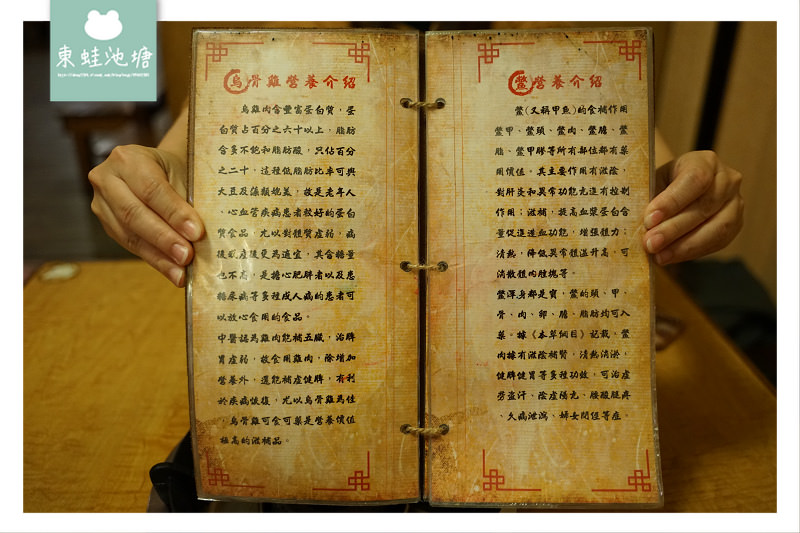 東蛙池塘
烏骨雞營養介紹
烏骨雞肉含豐富蛋白質，蛋
白質占百分之六十以上，脂肪
含多不飽和脂肪酸，只佔百分
之二十，這種低脂肪比率可與
大豆及藻類媲美，故是老年人
、心血管疾病患者較好的蛋白
質食品，尤以對體質虛弱，病
後或產後更為適宜，其含糖量
也不高，是擔心肥胖者以及患
糖尿病等多種成人病的患者可
以放心食用的食品。
中醫認為雞肉能補五臟，治脾
胃虛弱，故食用雞肉，除增加
營養外，還能補虛健脾，有利
於疾病恢復，尤以烏骨雞為佳
，烏骨雞可食可藥是營養價值
極高的滋補品。
鱉營養介紹
鱉(又稱甲魚)的食補作用
鱉甲、鱉頭、鱉肉、鱉膽、鱉
脂、鱉甲膠等所有部位都有藥
用價值。其主要作用有滋陰，
對肝炎和異常功能亢進有控制
作用；滋補，提高血漿蛋白含
量促進造血功能，增強體力；
清熱，降低異常體溫升高，可
消散體內腫塊等。
鱉渾身都是寶，鱉的頭、甲、
骨、肉、卵、膽、脂肪均可入
藥。據《本草綱目》記載，鱉
肉據有滋陰補腎，清熱消淤，
健脾健胃等多種功效，可治虛
勞盜汗、陰虛陽亢、腰酸腿疼
、久病泄瀉、婦女閉經等症。